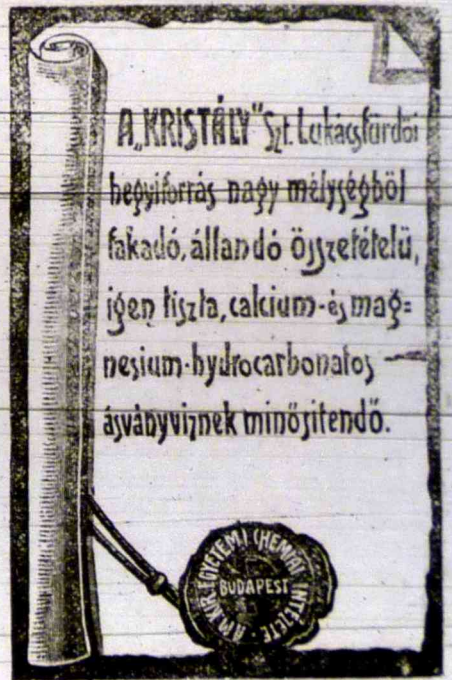 A „KRISTÁLY" Szt. Lukácsfürdői
hegyiforrás nagy mélységből
fakadó, állandó összetételű,
igen tiszta, calcium- és mag=
nesium-hydrocarbonatos
ásványviznek minősitendő.
A M. KIR. EGYETEM I. CHEMIAI INTÉZETE
BUDAPEST